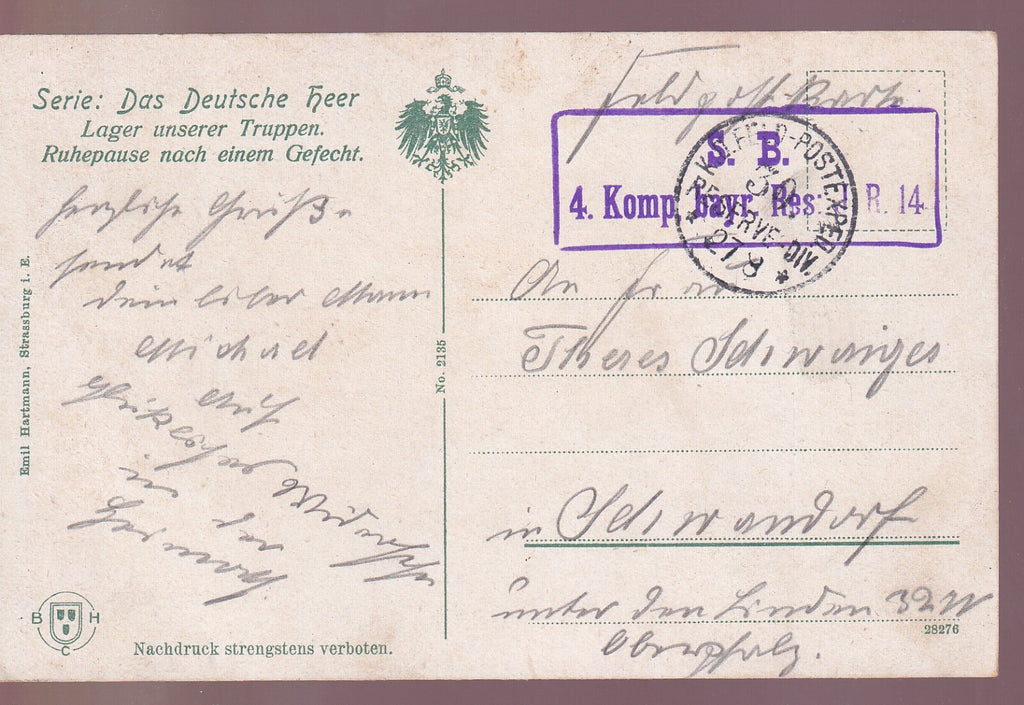 Serie: Das Deutsche Heer
Lager unserer Truppen.
Ruhepause nach einem Gefecht.
Feldpostkarte
S. B.
4. Komp. bayr. Res. I. R. 14
K.B. FELD-POSTEXPED.
RESERVE-DIV.
27 8
Herzliche Grüße
sendet
dein lieber Mann
Michael
Auf
glükliches Widersehn
in der
Heimath
An Frau
Theres Schwaiger
in Schwandorf
unter den Linden 32
Oberpfalz.
Emil Hartmann, Strassburg i. E.
No. 2135
28276
B H
C
Nachdruck strengstens verboten.